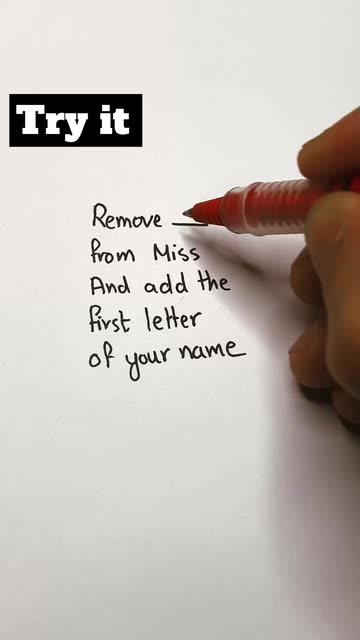 Try it
Remove __
from Miss
And add the
first letter
of your name